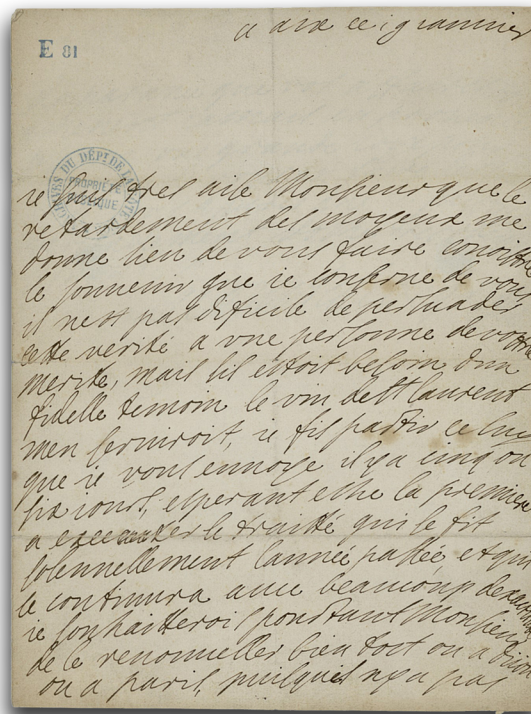 a aix ce 19 ianvier
E 81
ARCHIVES DU DÉPT DE LA CÔTE
PROPRIÉTÉ
PUBLIQUE
ie suis tres aise Monsieur que le
retardement des moyeux me
donne lieu de vous faire conoistre
le souuenir que ie conserue de vous
il nest pas dificile de persuader
cette verité a vne personne de vostre
merite, mais sil estoit besoin dun
fidelle temoin le vin de st laurent
men seruiroit, ie fis partir celuy
que ie vous enuoye il y a cinq ou
six iours, esperant estre la premiere
a executer le traitté qui se fit
solennellement lannée passée et qui
se continura auec beaucoup
ie souhaitterois pourtant Monsieur
de le renouueller bien tost ou a Dijon
ou a paris, puisquil ny a pas